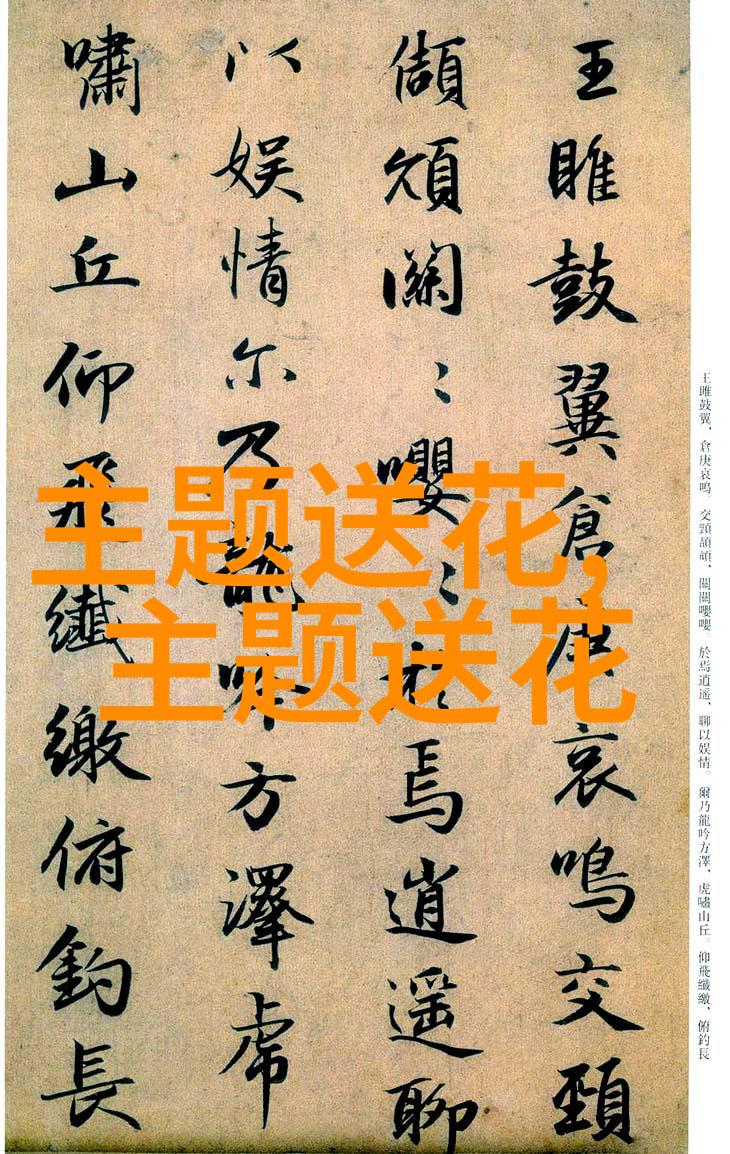 王雎鼓翼倉庚哀鳴交頸
頡頏關〻嚶〻於焉逍遥聊
以娱情尔乃龍吟方澤虎
嘯山丘仰飛纖繳俯釣長
主题送花,
主题送花
王雎鼓翼，倉庚哀鳴。交頸頡頏，關關嚶嚶。於焉逍遥，聊以娱情。爾乃龍吟方澤，虎嘯山丘。仰飛纖繳，俯釣長